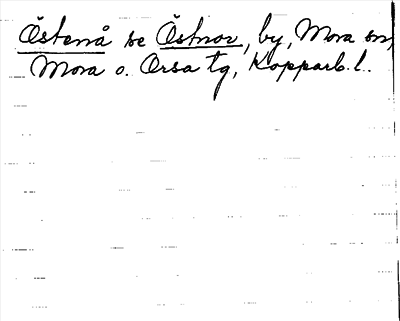 Östenå se Östnor, by, Mora sn,
Mora o. Orsa tg, Kopparb. l.